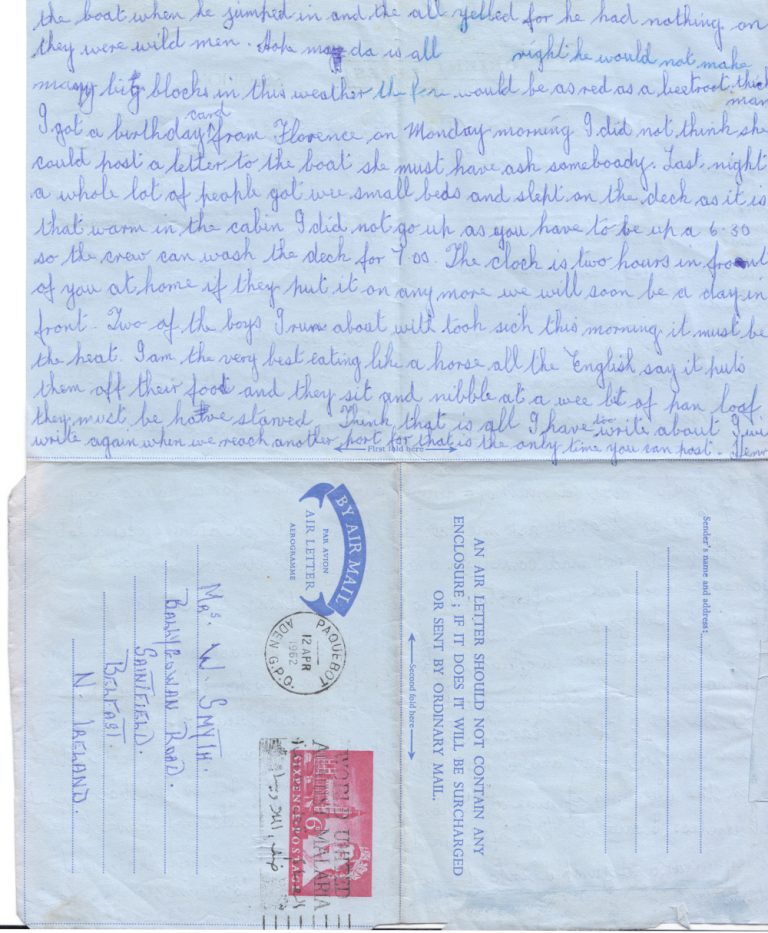 the boat when he jumped in and the all yelled for he had nothing on
they were wild men. Hope da is all right he would not make
many big blocks in this weather the would be as red as a beetroot. thick
man
I got a birthday card from Florence on Monday morning I did not think she
could post a letter to the boat she must have ask someboady. Last night
a whole lot of people got wee small beds and slept on the deck as it is
that warm in the cabin I did not go up as you have to be up a 6.30
so the crew can wash the deck for 7 os. The clock is two hours in front
of you at home if they put it on any more we will soon be a day in
front. Two of the boys I run about with took sick this morning it must be
the heat. I am the very best eating like a horse all the English say it puts
them off their food and they sit and nibble at a wee bt of pan loaf
they must be starved. Think that is all I have too write about I
write again when we reach another port for that is the only time you can post.
First fold here
BY AIR MAIL
AIR LETTER
PAR AVION
AEROGRAMME
PAQUEBOT
12 APR
1962
ADEN G.P.O.
Mrs. W. SMYTH.
BALLYGOWAN ROAD.
SAINTFIELD.
BELFAST.
N. IRELAND.
WORLD UNITED
AGAINST MALARIA
6
SIXPENCE·POSTAGE
Second fold here
AN AIR LETTER SHOULD NOT CONTAIN ANY
ENCLOSURE ; IF IT DOES IT WILL BE SURCHARGED
OR SENT BY ORDINARY MAIL.
Sender's name and address: